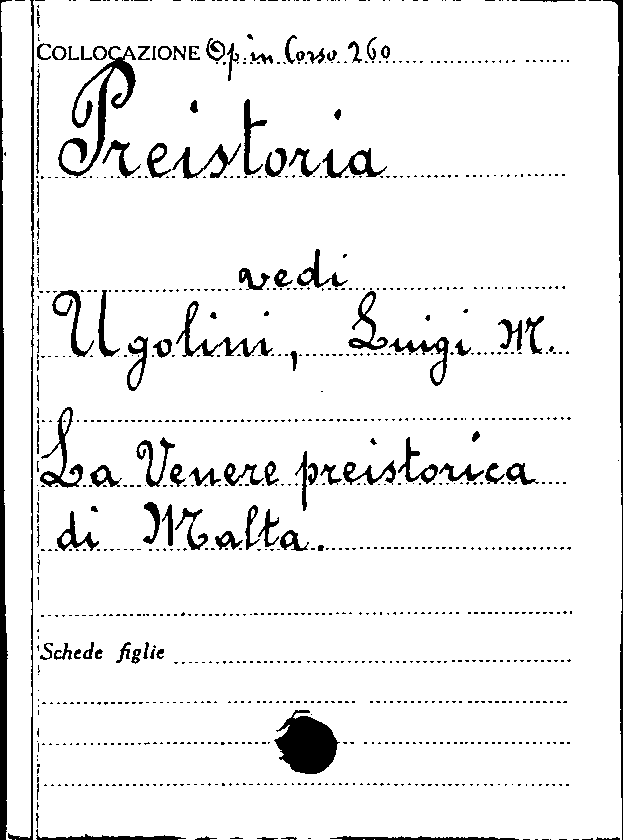 COLLOCAZIONE Op. in Corso 260
Preistoria
vedi
Ugolini, Luigi M.
La Venere preistorica
di Malta.
Schede figlie